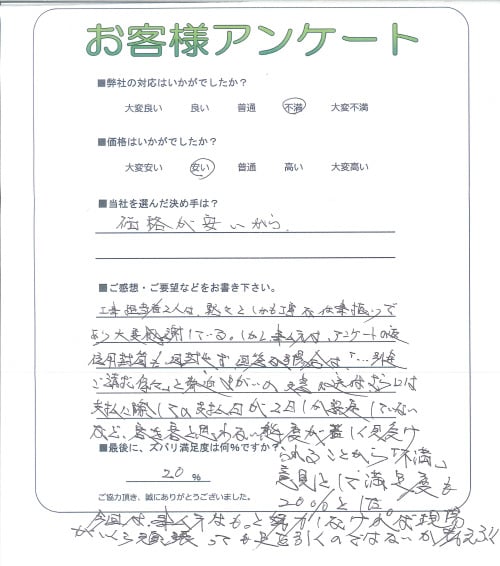 お客様アンケート
■弊社の対応はいかがでしたか？
大変良い 良い 普通 不満 大変不満
■価格はいかがでしたか？
大変安い 安い 普通 高い 大変高い
■当社を選んだ決め手は？
価格が安いから．
■ご感想・ご要望などをお書き下さい。
工事担当者2人は、黙々としかも丁寧な仕事振りで
あり大変感謝している。しかし事ム方は、アンケートの返
信用封筒も 同封せず
ご請求
支払に際しての支払日が2日しか
など、 態度が 見受け
られることから「不満」
■最後に、ズバリ満足度は何%ですか？
20 %
意見として満足度も
20%とした。
ご協力頂き、誠にありがとうございました。
今回は、事ム方はもっと努力しなければ現場
がいくら頑張っても足を引くのではないか